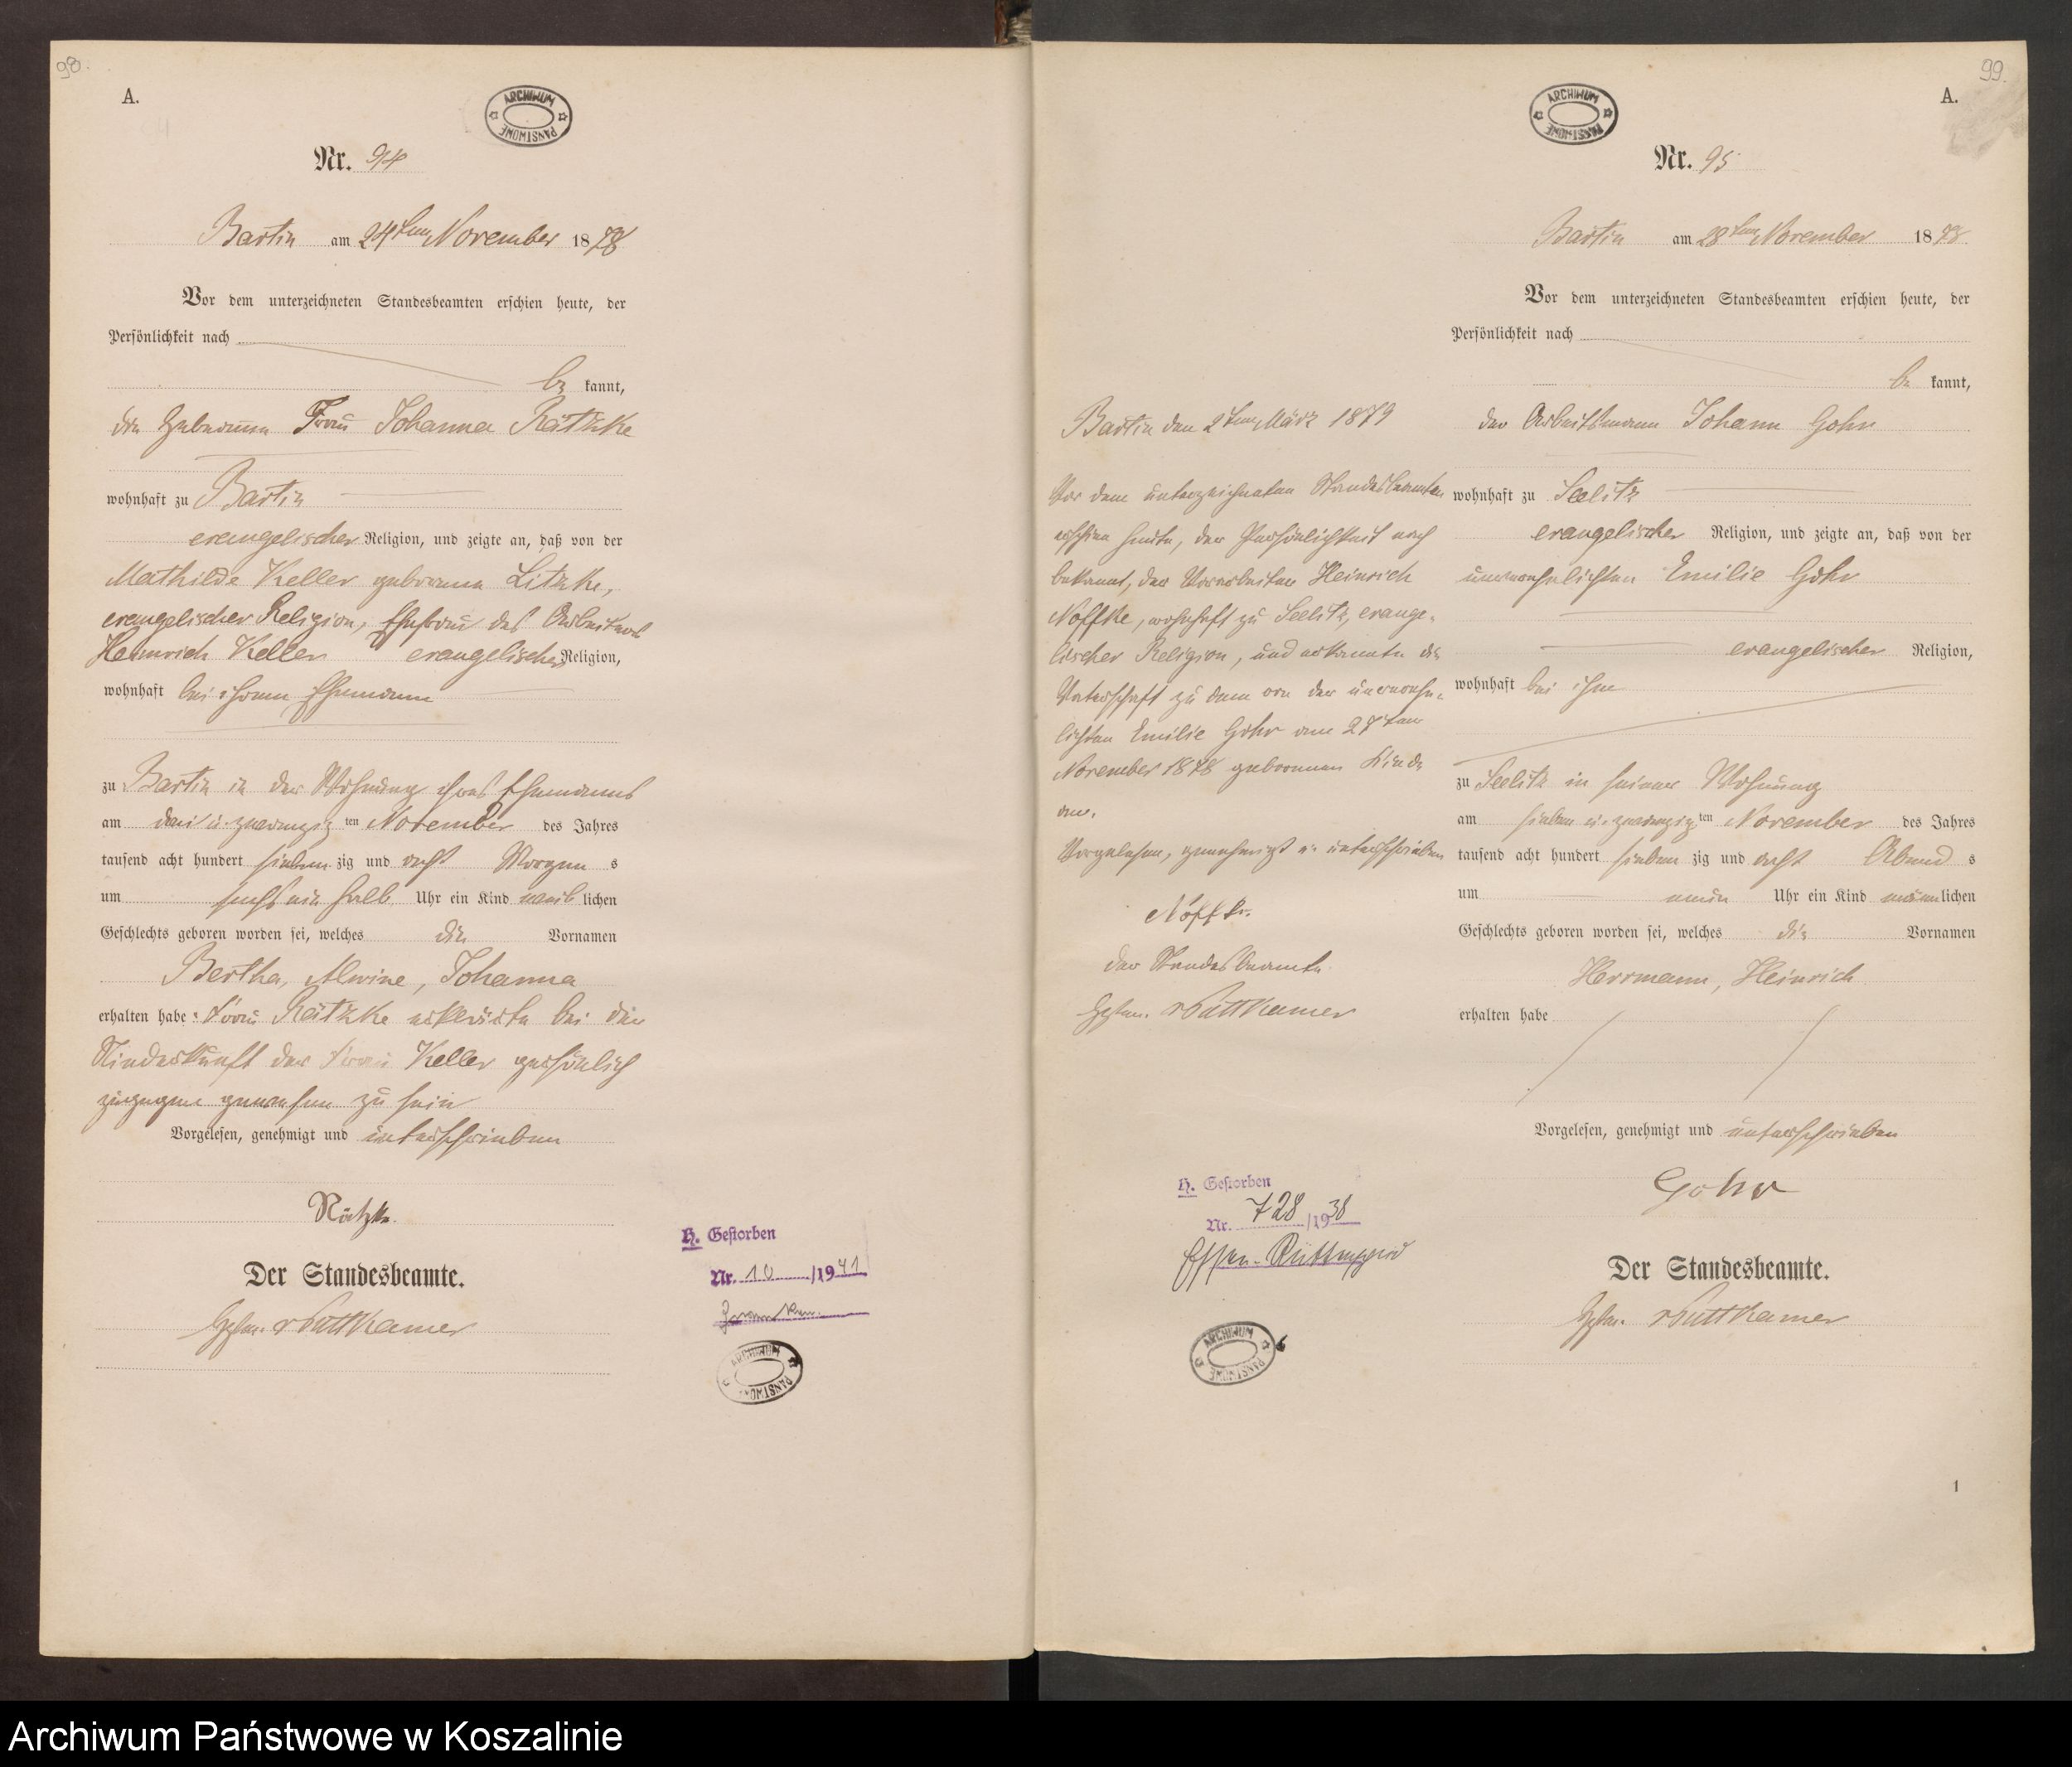 98.
A.
ARCHIWUM PAŃSTWOWE
Nr. 94
Bartin am 24ten November 1878
Vor dem unterzeichneten Standesbeamten erschien heute, der
Persönlichkeit nach
be kannt,
die Hebamme Frau Johanna Rätzke
wohnhaft zu Bartin
evangelischer Religion, und zeigte an, daß von der
Mathilde Keller geborene Litzke,
evangelischer Religion, Ehefrau des Arbeiters
Heinrich Keller evangelischer Religion,
wohnhaft bei ihrem Ehemann
zu Bartin in der Wohnung ihres Ehemanns
am drei u. zwanzig ten November des Jahres
tausend acht hundert sieben zig und acht Morgen s
um sechs ein halb Uhr ein Kind weib lichen
Geschlechts geboren worden sei, welches die Vornamen
Bertha, Alwine, Johanna
erhalten habe. Frau Rätzke erklärte bei der
Niederkunft der Frau Keller persönlich
zugegen gewesen zu sein
Vorgelesen, genehmigt und unterschrieben
Rätzke.
Der Standesbeamte.
vPuttkamer
H. Gestorben
Nr. 10 /1941
ARCHIWUM PAŃSTWOWE
99.
A.
ARCHIWUM PAŃSTWOWE
Nr. 95
Bartin am 28ten November 1878
Vor dem unterzeichneten Standesbeamten erschien heute, der
Persönlichkeit nach
be kannt,
der Arbeitsmann Johann Gohr
wohnhaft zu Seelitz
evangelischer Religion, und zeigte an, daß von der
unverehelichten Emilie Gohr
evangelischer Religion,
wohnhaft bei ihm
zu Seelitz in seiner Wohnung
am sieben u. zwanzig ten November des Jahres
tausend acht hundert sieben zig und acht Abend s
um neun Uhr ein Kind männ lichen
Geschlechts geboren worden sei, welches die Vornamen
Herrmann, Heinrich
erhalten habe
Vorgelesen, genehmigt und unterschrieben
Gohr
Der Standesbeamte.
vPuttkamer
Bartin den 2ten März 1879
Vor dem unterzeichneten Standesbeamten
erschien heute, der Persönlichkeit nach
bekannt, der Vorarbeiter Heinrich
Noffke, wohnhaft zu Seelitz, evange-
lischer Religion, und erkannte die
Vaterschaft zu dem von der unverehe-
lichten Emilie Gohr am 27ten
November 1878 geborenen Kinde
an.
Vorgelesen, genehmigt u. unterschrieben
Noffke.
der Standesbeamte.
vPuttkamer
H. Gestorben
Nr. 728 /1938
Essen-Rüttenscheid
ARCHIWUM PAŃSTWOWE
1
Archiwum Państwowe w Koszalinie